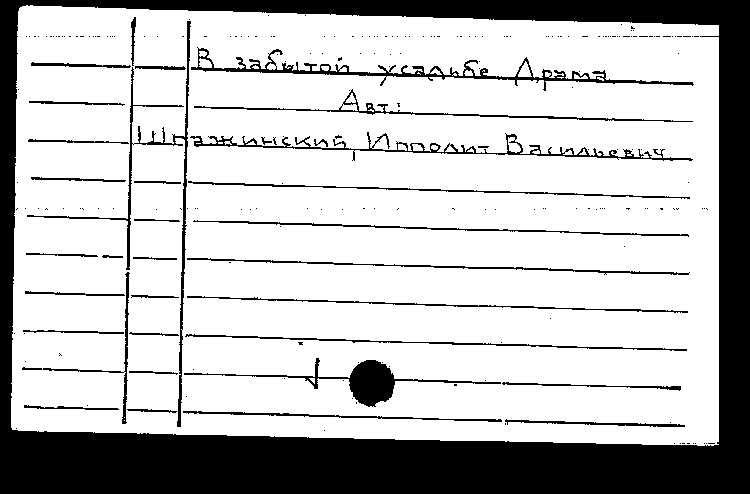 В забытой усадьбе Драма
Авт.:
Шпажинский, Ипполит Васильевич.